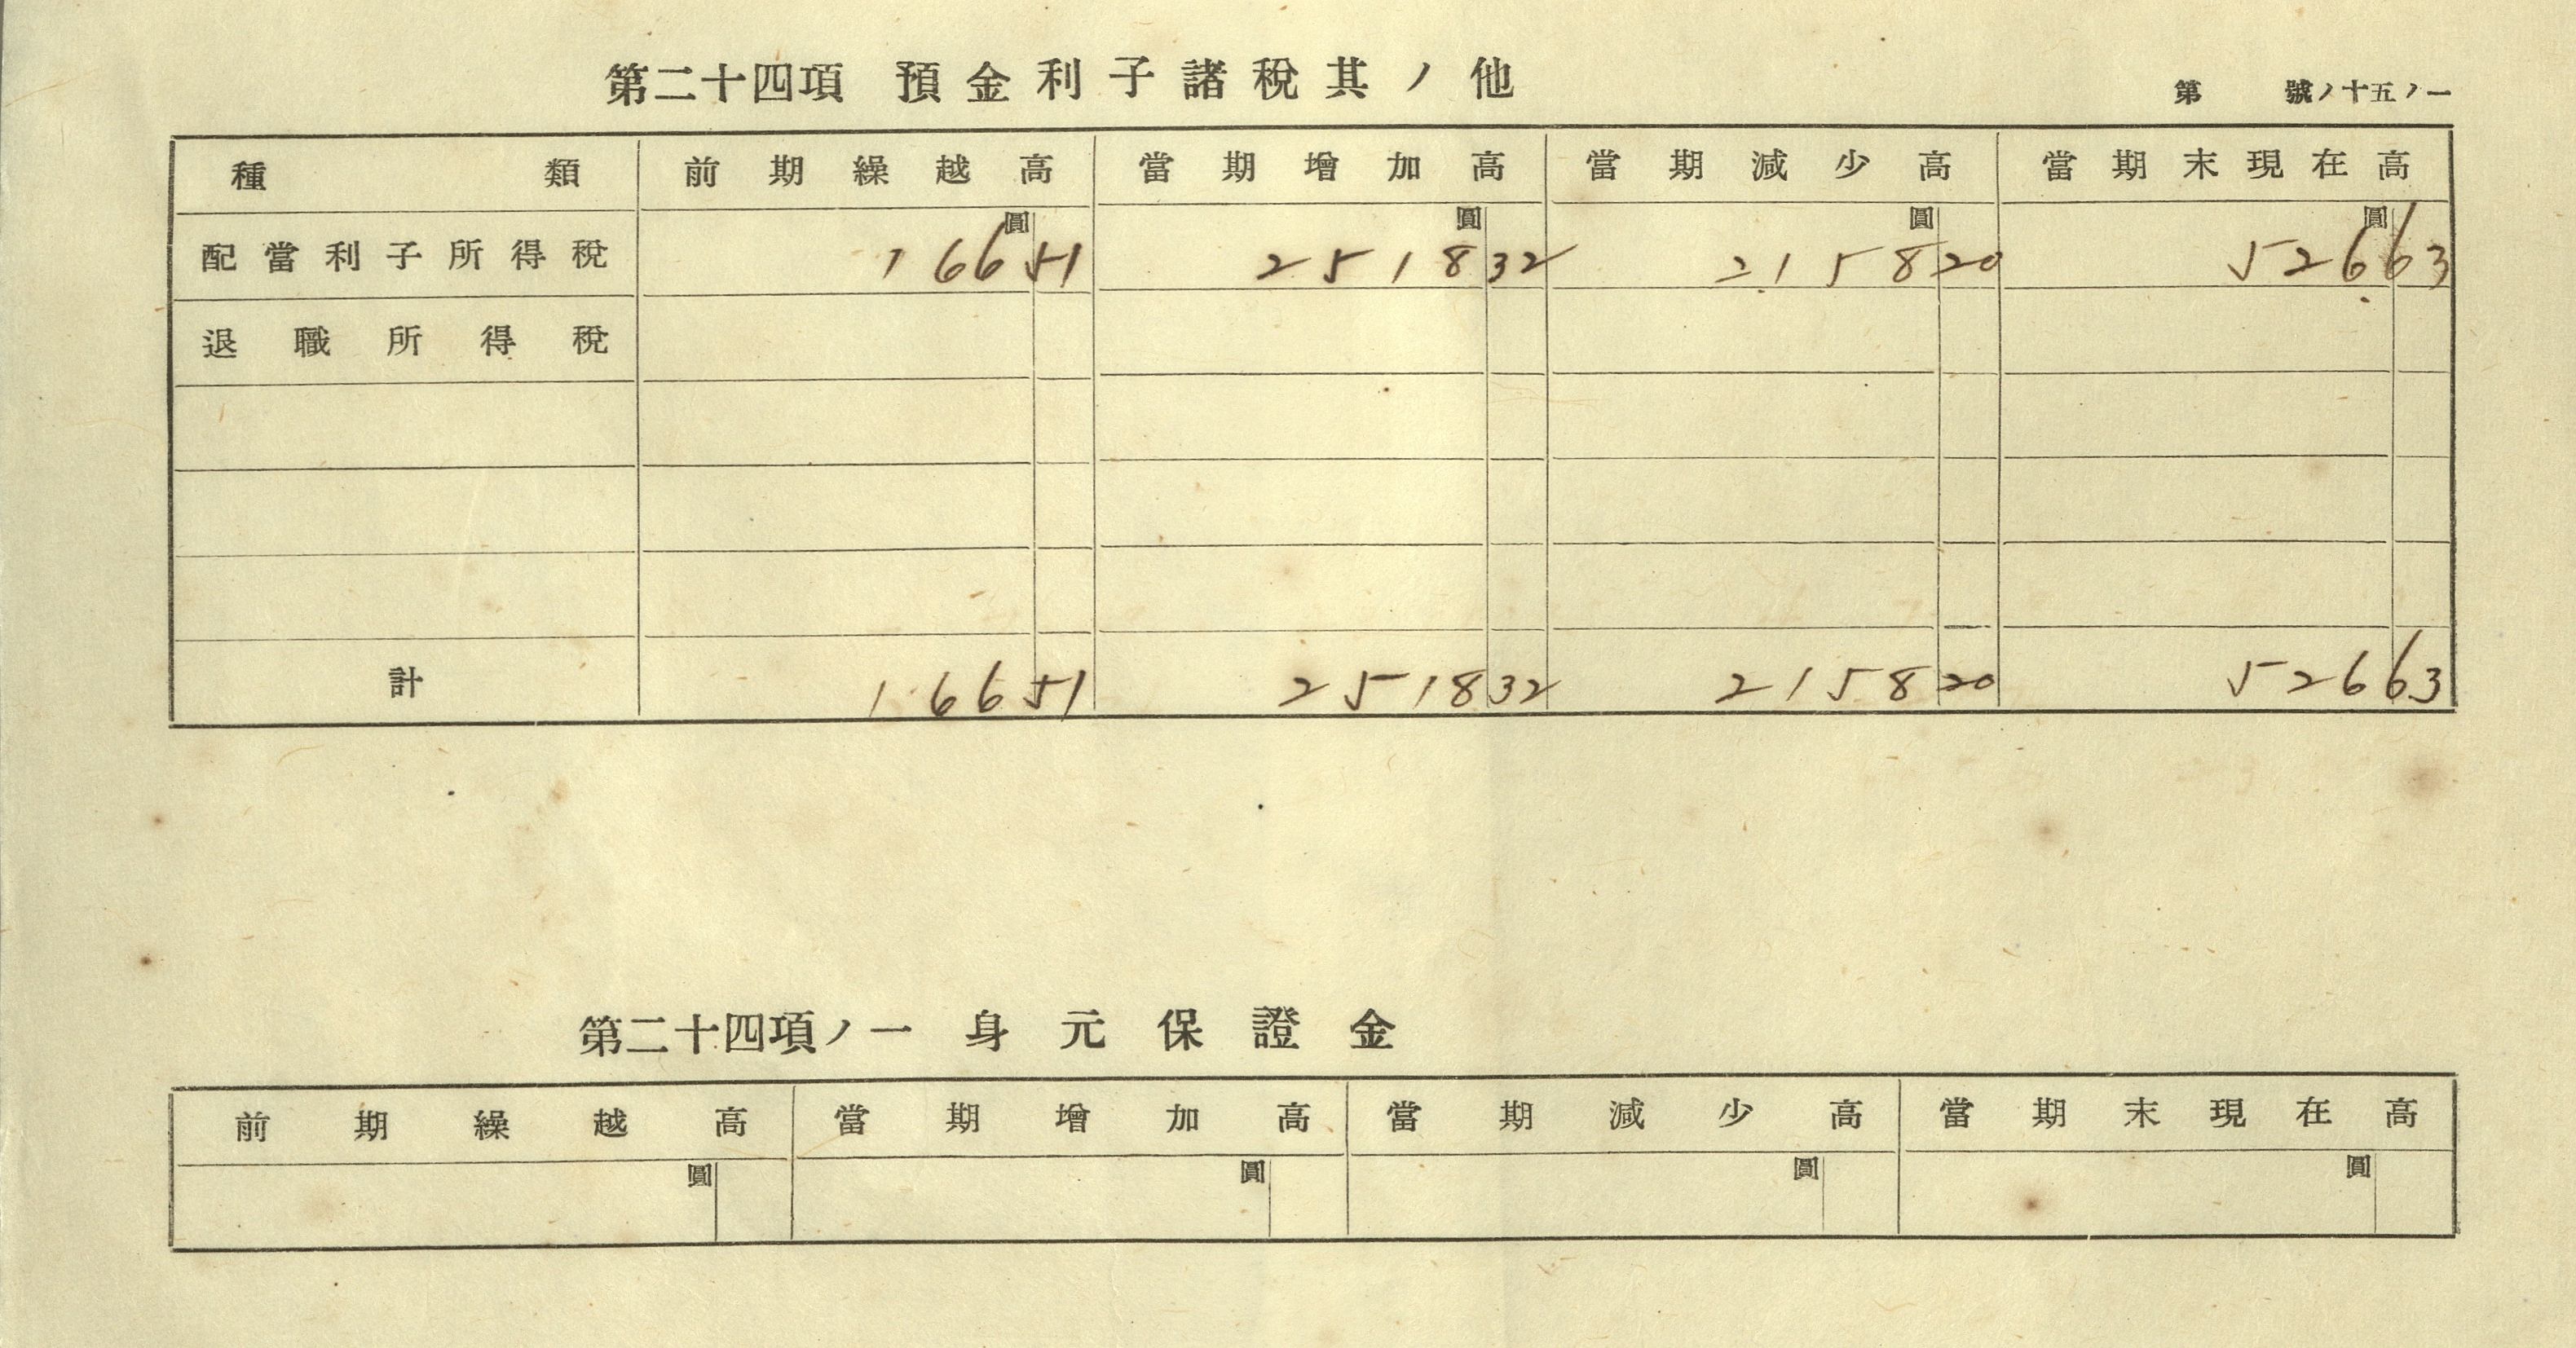 第二十四項 預金利子諸稅其ノ他
第 號ノ十五ノ一
種類 前期繰越高 當期增加高 當期減少高 當期末現在高
圓 圓 圓 圓
配當利子所得稅 166 51 2518 32 2158 20 526 63
退職所得稅
計 166 51 2518 32 2158 20 526 63
第二十四項ノ一 身元保證金
前期繰越高 當期增加高 當期減少高 當期末現在高
圓 圓 圓 圓